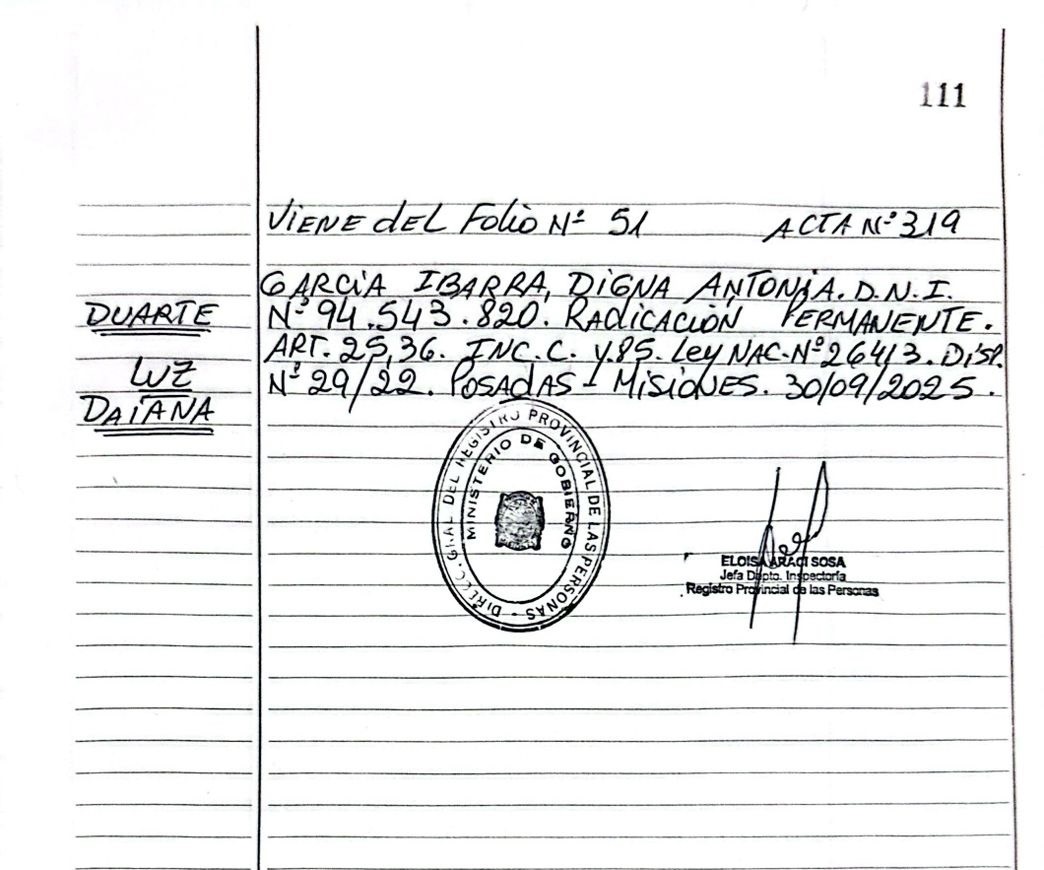 111
VIENE dEL FOLIO Nº 51 ACTA Nº 319
GARCIA IBARRA, DIGNA ANTONIA. D.N.I.
Nº 94.543.820. RADICACIÓN PERMANENTE.
ART. 25,36. INC.C. Y.85. Ley NAC.Nº26413. DISP.
Nº 29/22. POSADAS - MISIONES. 30/09/2025.
DUARTE
LUZ
DAIANA
DIRECC. GRAL DEL REGISTRO PROVINCIAL DE LAS PERSONAS -
MINISTERIO DE GOBIERNO
ELOISA ARACI SOSA
Jefa Dpto. Inspectoría
Registro Provincial de las Personas